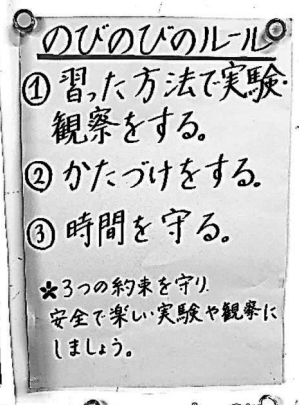 のびのびのルール
①習った方法で実験・
観察をする。
②かたづけをする。
③時間を守る。
★3つの約束を守り、
安全で楽しい実験や観察に
しましょう。